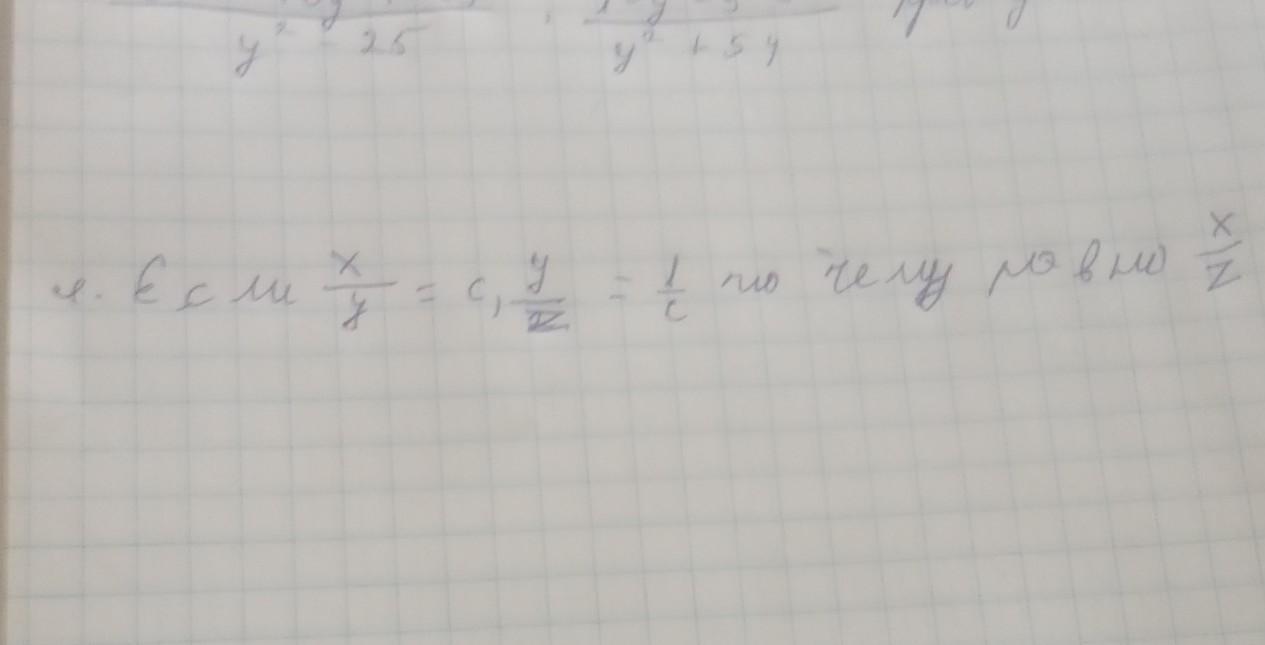 y² - 25 y² + 5y
Если x/y = c, y/z = 1/c то чему равно x/z